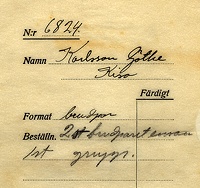 N:r 6824.
Namn Karlsson Göthe
Kisa
Färdigt
Format brudpar
Beställn. 2 st brudparet ensam
1st grupp.